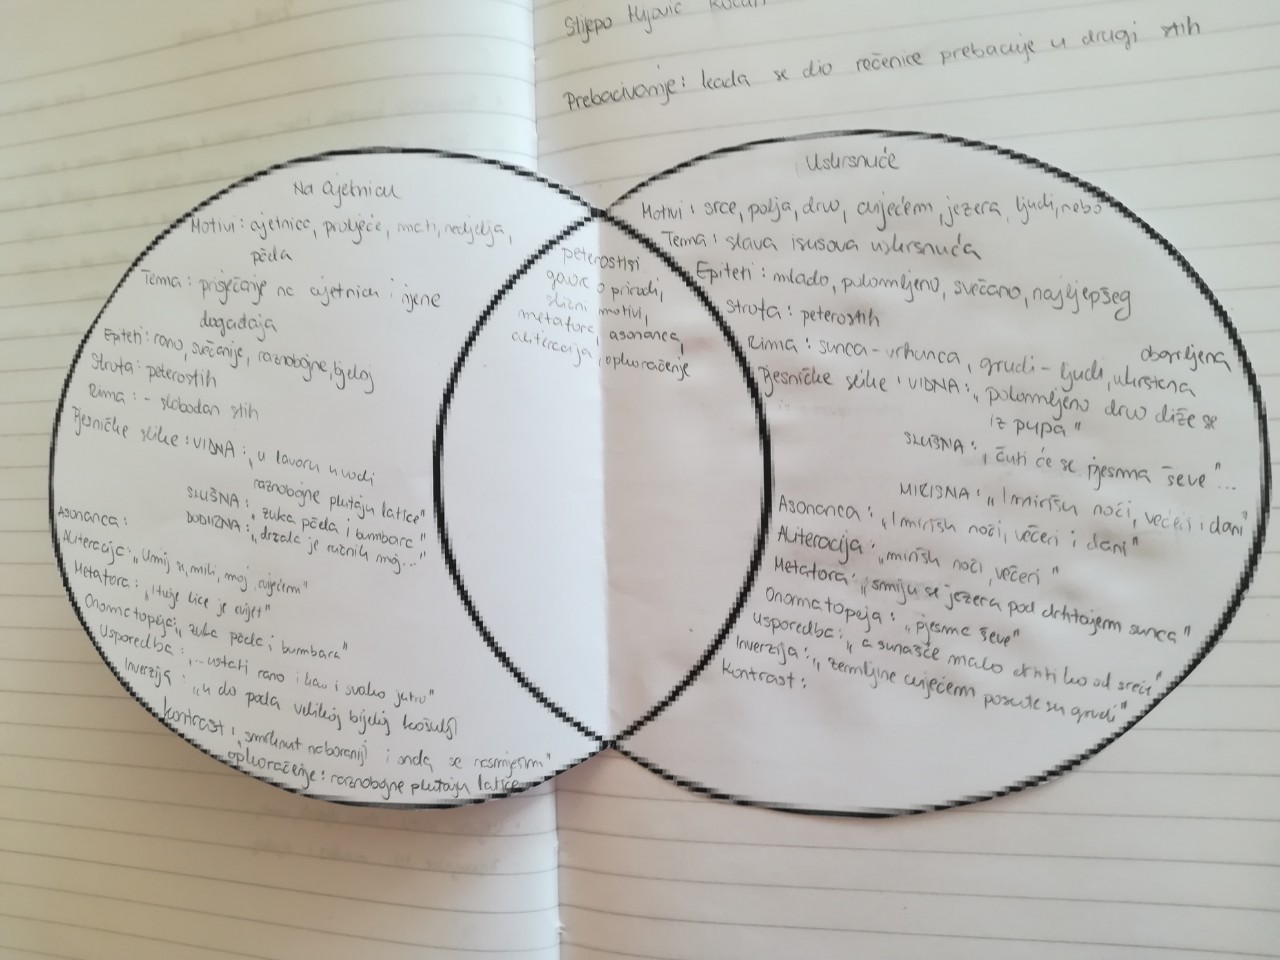 Stijepo Mijović Kočan
Prebacivanje: kada se dio rečenice prebacuje u drugi stih
Na Cvjetnicu
Motivi: cvjetnice, proljeće, mati, nedjelja,
pčela
Tema: prisjećanje na cvjetnicu i njene
događaja
Epiteti: rano, svečanije, raznobojne, bijeloj
Strofa: peterostih
Rima: - slobodan stih
Pjesničke slike: VIDNA: „u lavoru u vodi
raznobojne plutaju latice"
SLUŠNA: „zuka pčela i bumbara"
DODIRNA: „držala je ručnik moj..."
Asonanca:
Aliteracija: „Umij se, mili, moj, cvijećem"
Metafora: „Tvoje lice je cvijet"
Onomatopeja: „zuka pčela i bumbara"
Usporedba: „...ustati rano i kao i svako jutro"
Inverzija: „u do poda velikoj bijeloj košulji
Kontrast: „smrknut naboraniji i onda se nasmijem"
opkoračenje: raznobojne plutaju latice
peterostisi
govore o prirodi,
slični motivi,
metafore, asonanca,
aliteracija, opkoračenje
Uskrsnuće
Motivi: srce, polja, drvo, cvijećem, jezera, ljudi, nebo
Tema: slava isusova uskrsnuća
Epiteti: mlado, polomljeno, svečano, najljepšeg
Strofa: peterostih
Rima: sunca-vrhunca, grudi-ljudi, ukrstena
obgrljena
Pjesničke slike: VIDNA: „polomljeno drvo diže se
iz pupa"
SLUŠNA: „čuti će se pjesma ševe"...
MIRISNA: „I mirišu noći, večeri i dani"
Asonanca: „I mirišu noći, večeri i dani"
Aliteracija: „mirišu noći, večeri"
Metafora: „smiju se jezera pod drhtajem sunca"
Onomatopeja: „pjesma ševe"
Usporedba: „a sunašce malo drhti ko od sreće"
Inverzija: „zemljine cvijećem posute su grudi"
Kontrast: